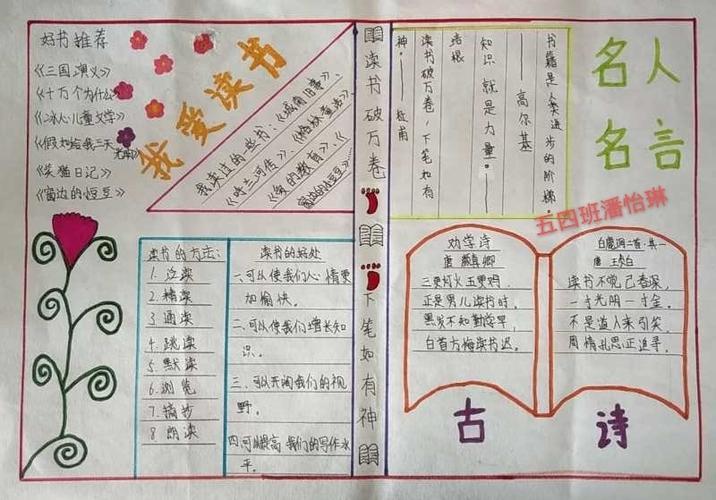 好书推荐
《三国演义》
《十万个为什么》
《冰心儿童文学》
《假如给我三天
光明》
《笑猫日记》
《窗边的小豆豆》
我爱读书
我读过的些书:《城南旧事》、
《呼兰河传》、《格林童话》、
《爱的教育》、
《窗边的小豆豆》
读书的方法:
1. 泛读
2. 精读
3 通读
4. 跳读
5. 默读
6. 浏览
7. 摘抄
8 朗读
读书的好处
一、可以使我们心情更
加愉快。
二、可以使我们增长知
识。
三、可以开阔我们的视
野。
四可以提高我们的写作水
平。
读书破万卷
下笔如有神
书籍是人类进步的阶梯。
——高尔基
知识就是力量。——
培根
读书破万卷,下笔如有
神。——杜甫
名人
名言
五四班潘怡琳
劝学诗
唐 颜真卿
三更灯火五更鸡,
正是男儿读书时,
黑发不知勤学早,
白首方悔读书迟。
白鹿洞二首·其一
唐 王贞白
读书不觉已春深,
一寸光阴一寸金。
不是道人来引笑,
周情孔思正追寻。
古诗